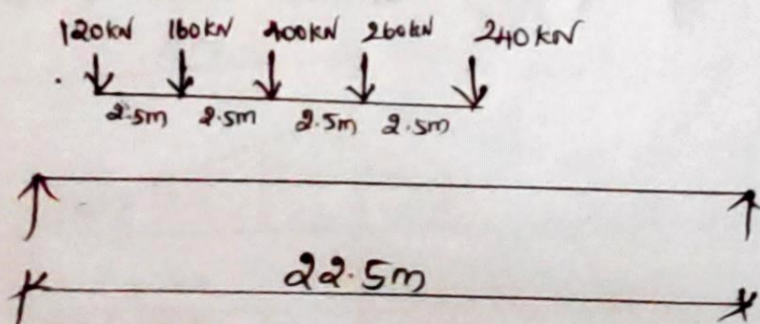 120kN 160kN 400kN 260kN 240kN
2.5m 2.5m 2.5m 2.5m
22.5m